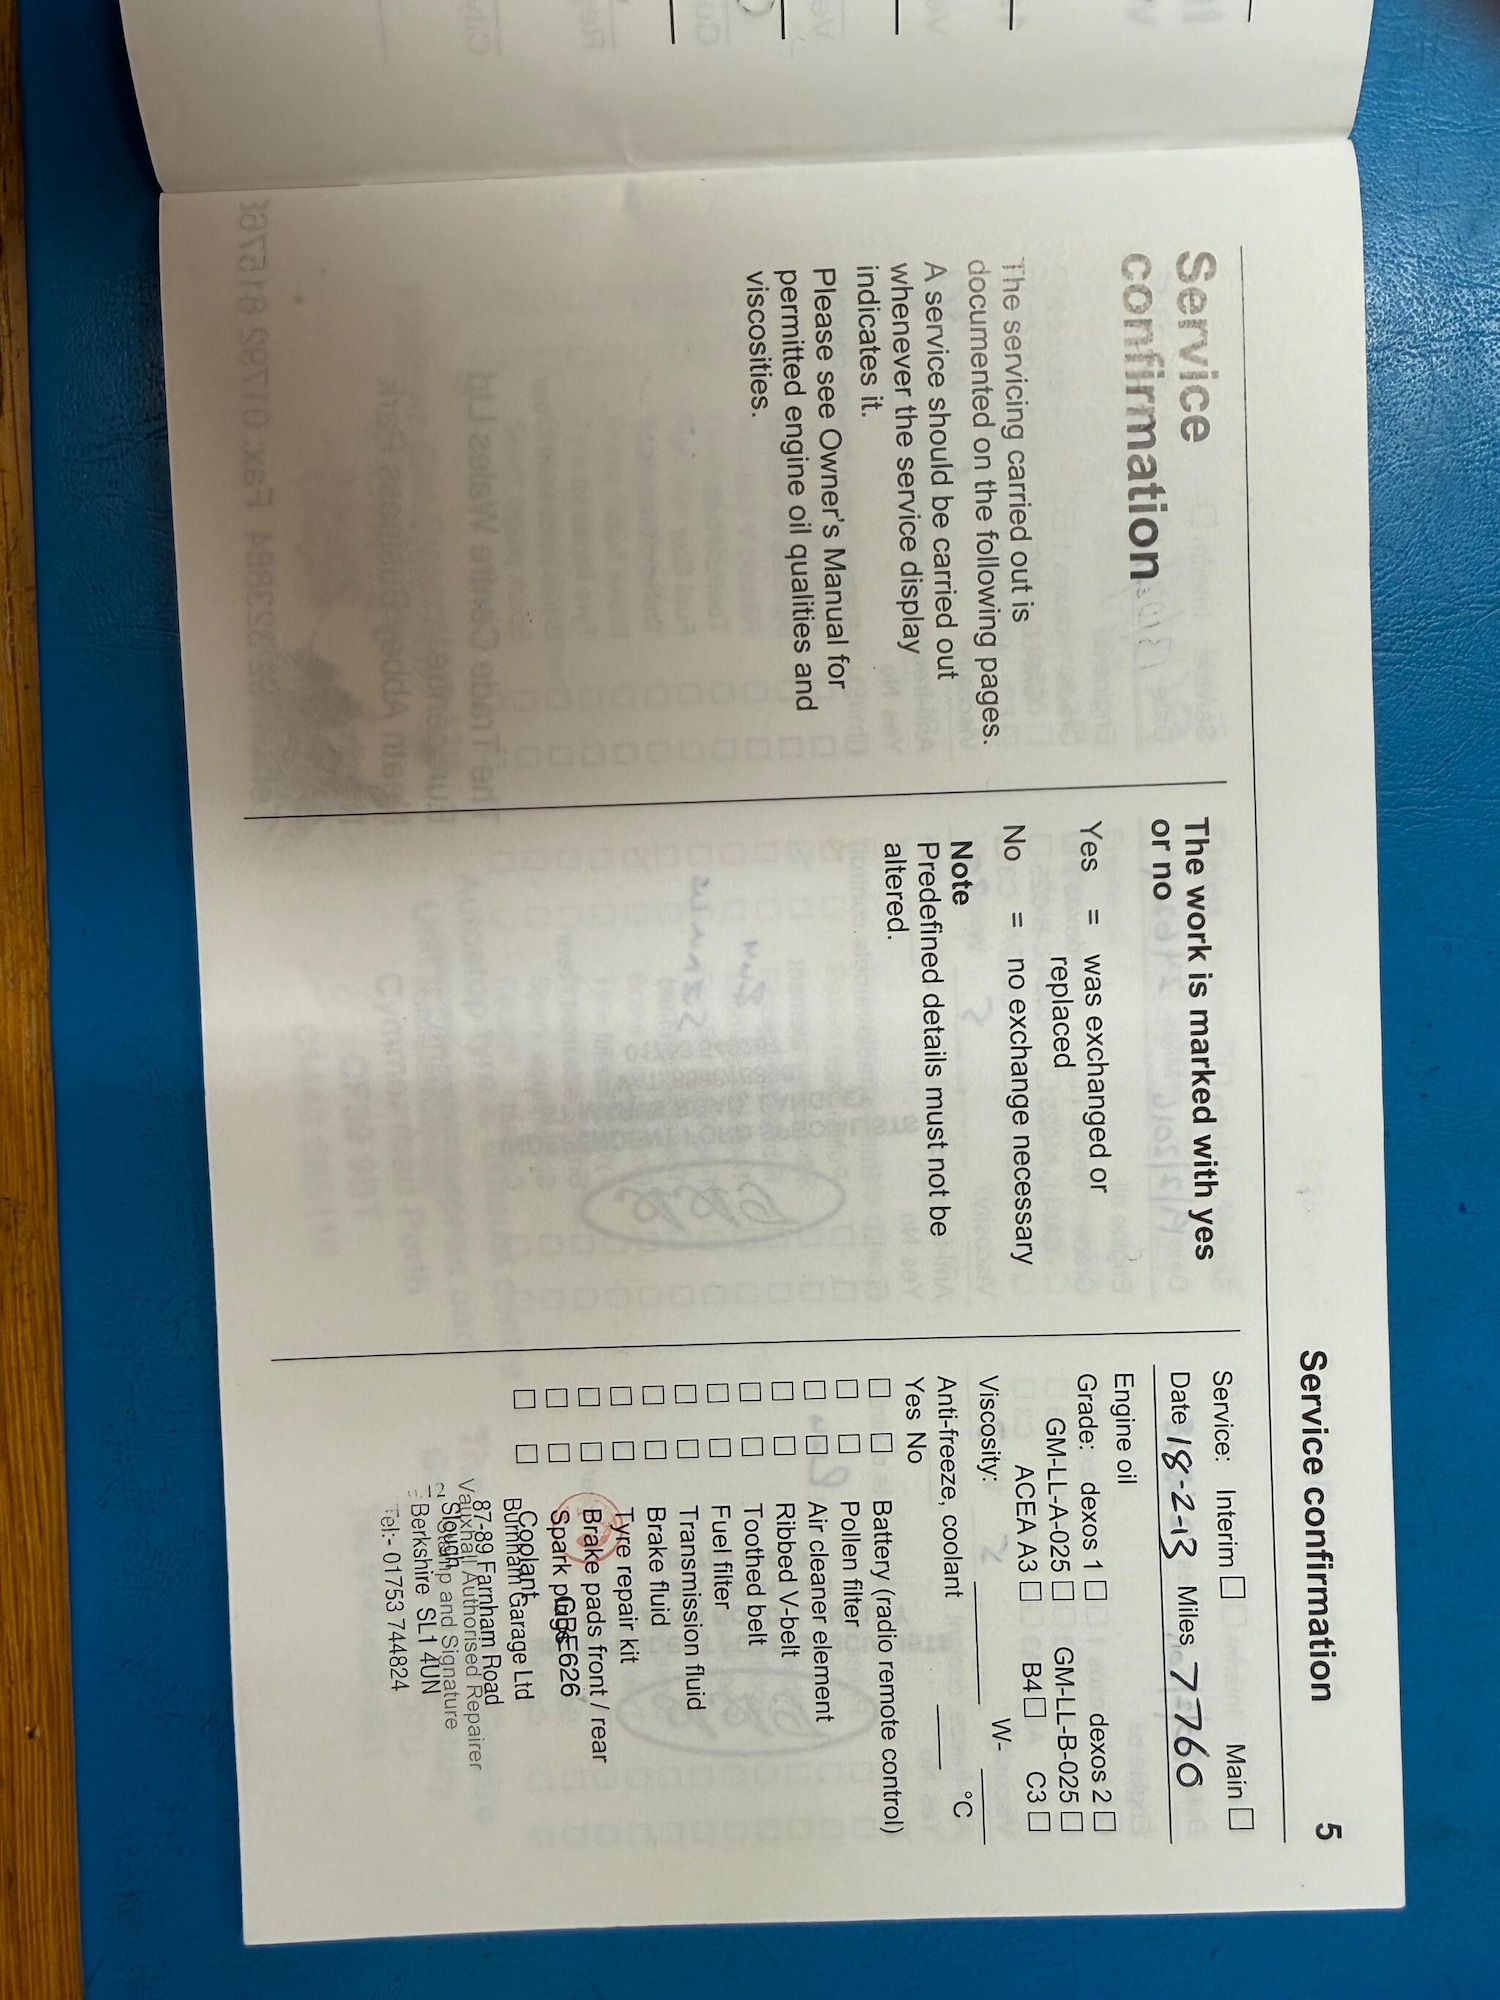 Service confirmation 5
Service
confirmation
The servicing carried out is
documented on the following pages.
A service should be carried out
whenever the service display
indicates it.
Please see Owner's Manual for
permitted engine oil qualities and
viscosities.
The work is marked with yes
or no
Yes = was exchanged or
replaced
No = no exchange necessary
Note
Predefined details must not be
altered.
Service: Interim ☐ Main ☐
Date 18-2-13 Miles 7760
Engine oil
Grade: dexos 1 ☐ dexos 2 ☐
GM-LL-A-025 ☐ GM-LL-B-025 ☐
ACEA A3 ☐ B4 ☐ C3 ☐
Viscosity: W-
Anti-freeze, coolant °C
Yes No
☐ ☐ Battery (radio remote control)
☐ ☐ Pollen filter
☐ ☐ Air cleaner element
☐ ☐ Ribbed V-belt
☐ ☐ Toothed belt
☐ ☐ Fuel filter
☐ ☐ Transmission fluid
☐ ☐ Brake fluid
☐ ☐ Tyre repair kit
☐ ☐ Brake pads front / rear
☐ ☐ Spark plugs
GBE626
☐ ☐ Coolant
Burnham Garage Ltd
87-89 Farnham Road
Vauxhall Authorised Repairer
Slough
Stamp and Signature
Berkshire SL1 4UN
Tel:- 01753 744824